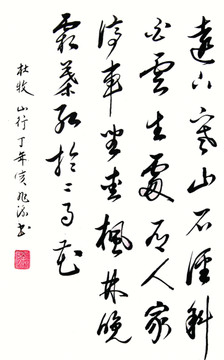 遠上寒山石徑斜
白雲生處有人家
停車坐愛楓林晚
霜葉紅於二月花
杜牧 山行 丁年亥 書